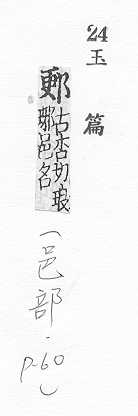 24
玉篇
郠
古杏切琅
邪邑名
(邑部·P-60)